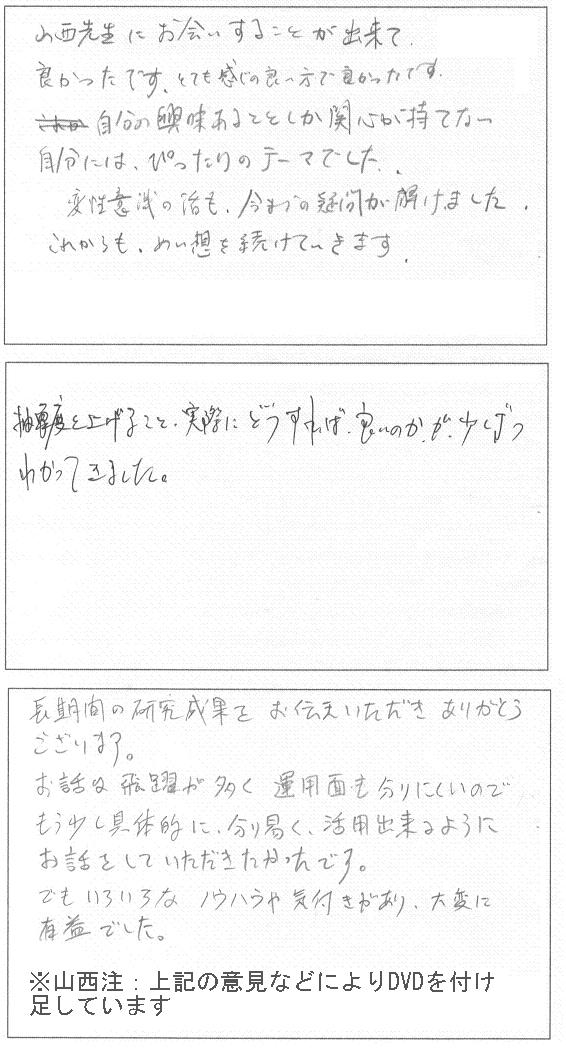 山西先生にお会いすることが出来て、
良かったです。とても感じの良い方で良かったです。
自分の興味あることしか関心が持てない
自分には、ぴったりのテーマでした。
変性意識の話も、今までの疑問が解けました。
これからも、めい想を続けていきます。
抽象度を上げること、実際にどうすれば、良いのか、が、少しずつ
わかってきました。
長期間の研究成果をお伝えいただきありがとう
ございます。
お話は飛躍が多く運用面も分りにくいので
もう少し具体的に、分り易く、活用出来るように
お話をしていただきたかったです。
でもいろいろなノウハウや気付きがあり、大変に
有益でした。
※山西注：上記の意見などによりDVDを付け
足しています